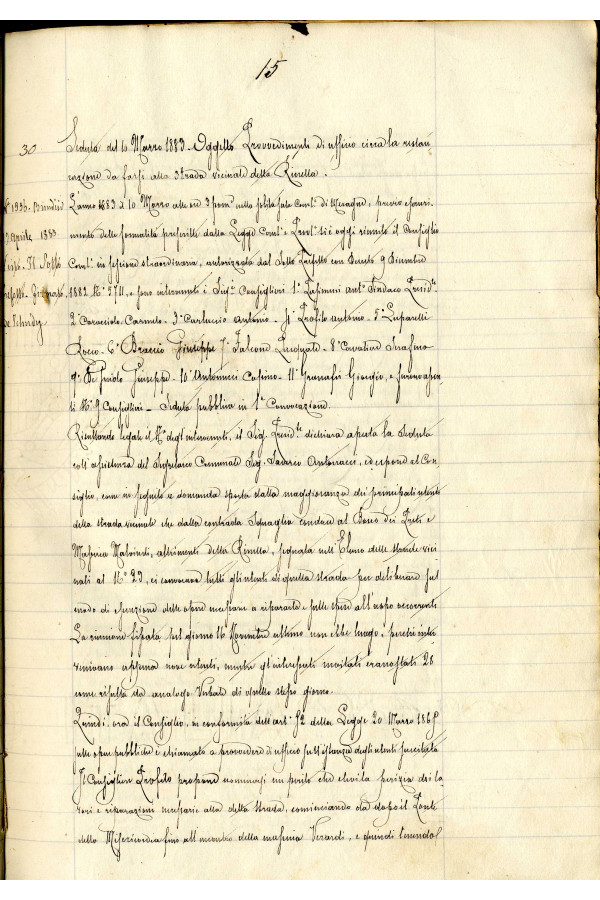 15
30
Seduta del 10 Marzo 1883 - Oggetto Provvedimenti di ufficio circa la restau-
razione da farsi alla strada vicinale detta Rinella.
L'anno 1883 il 10 Marzo alle ore 3 pom. nella solita sala Com.le di Mesagne, previo esauri-
N° 1996. Brindisi
mento delle formalità prescritte dalla Legge Com.le e Prov.le si è oggi riunito il Consiglio
Aprile 1883
Com.le in sessione straordinaria, autorizzata dal Sotto Prefetto con Decreto 9 Dicembre
Visto. Il Sotto
1882 N° 5711, e sono intervenuti i Sig.ri Consiglieri 1° Ant.° Sindaco Presid.te
Prefetto
2° Caracciolo Carmelo - 3° Carluccio Antonio - 4° Profilo Antonio - 5° Luparelli
Rocco - 6° Braccio Giuseppe 7° Falcone - 8° Cavaliere Serafino
9° Giuseppe - 10° Antonucci Cosimo - 11° Giorgio, e furono assen-
ti N° 9 Consiglieri - Seduta pubblica in 1ª Convocazione.
Risultando legale il N° degl'intervenuti, il Sig. Presid.te dichiara aperta la seduta
coll'assistenza del Segretario Comunale Sig. Saverio Antonucci, ed espone al Con-
siglio, come in seguito e domanda sporta dalla maggioranza dei principali utenti
della strada vicinale che dalla contrada conduce al Bosco dei Preti e
Masseria Malvindi, altrimenti detta Rinella, segnata nell'Elenco delle strade vici-
nali al N° 29, si convocava tutti gli utenti di quella strada per deliberare sul
modo di esecuzione delle opere necessarie a ripararla e sulle spese all'uopo occorrenti
La riunione fissata pel giorno 16 Novembre ultimo non ebbe luogo, perchè inter-
venivano appena nove utenti, mentre gl'interessati invitati erano stati 28
come risulta da analogo Verbale di quello stesso giorno.
Quindi ora il Consiglio, in conformità dell'art.° 52 della Legge 20 Marzo 1865
sulle opere pubbliche è chiamato a provvedere di ufficio sull'istanza degli utenti succitata
Il Consigliere Profilo propone nominarsi un perito che elevi la perizia dei la-
vori e riparazioni necessarie alla detta strada, cominciando da dopo il Ponte
della Misericordia fino all'incontro della masseria Verardi, e quindi tenendosi